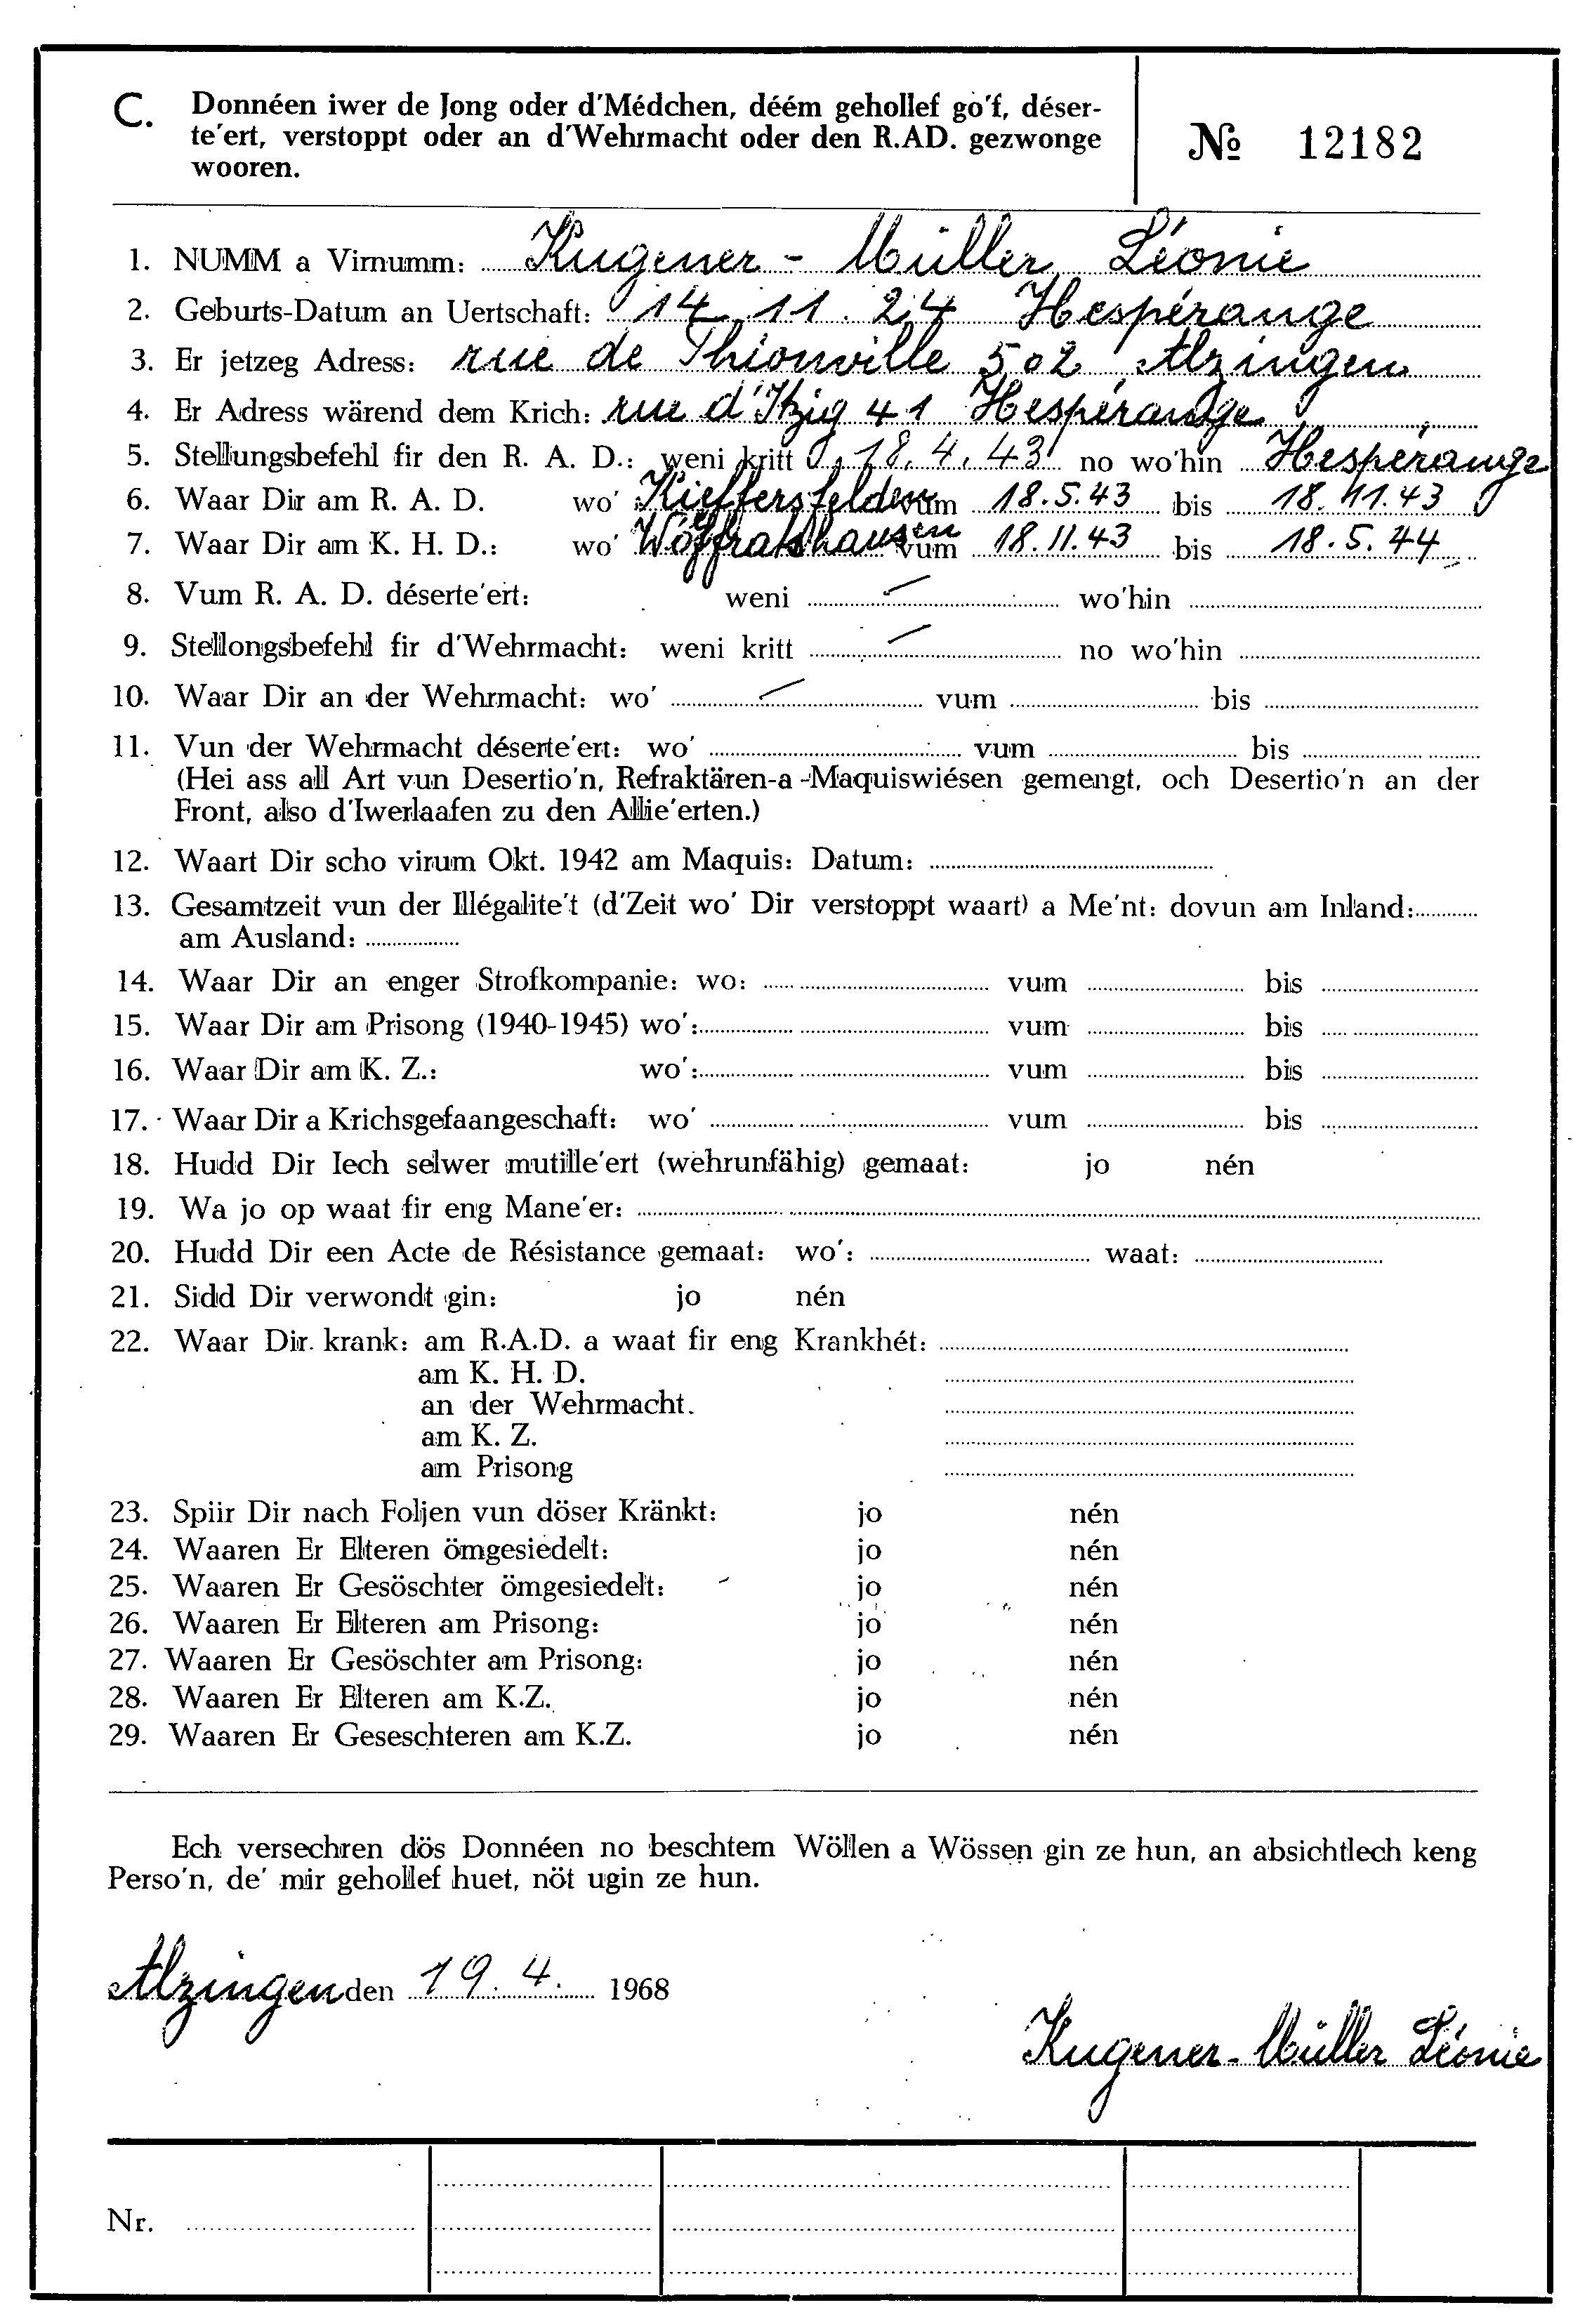 C. Donnéen iwer de Jong oder d'Médchen, déém gehollef go'f, déser-
te'ert, verstoppt oder an d'Wehrmacht oder den R.AD. gezwonge
wooren.
№ 12182
1. NUMM a Virnumm: Kugener - Müller Léonie
2. Geburts-Datum an Uertschaft: 14. 11. 24 Hespérange
3. Er jetzeg Adress: rue de Thionville 502, Alzingen
4. Er Adress wärend dem Krich: rue d'Itzig 41 Hespérange
5. Stellungsbefehl fir den R. A. D.: weni kritt 18. 4. 43 no wo'hin Hespérange
6. Waar Dir am R. A. D. wo' Kieffersfelden vum 18.5.43 bis 18.11.43
7. Waar Dir am K. H. D.: wo' Wolffratshausen vum 18.11.43 bis 18.5.44
8. Vum R. A. D. déserte'ert: weni wo'hin
9. Stellongsbefehl fir d'Wehrmacht: weni kritt no wo'hin
10. Waar Dir an der Wehrmacht: wo' vum bis
11. Vun der Wehrmacht déserte'ert: wo' vum bis
(Hei ass all Art vun Desertio'n, Refraktären-a-Maquiswiésen gemengt, och Desertio'n an der
Front, also d'Iwerlaafen zu den Allie'erten.)
12. Waart Dir scho virum Okt. 1942 am Maquis: Datum:
13. Gesamtzeit vun der Illégalite't (d'Zeit wo' Dir verstoppt waart) a Me'nt: dovun am Inland:
am Ausland:
14. Waar Dir an enger Strofkompanie: wo: vum bis
15. Waar Dir am Prisong (1940-1945) wo': vum bis
16. Waar Dir am K. Z.: wo': vum bis
17. Waar Dir a Krichsgefaangeschaft: wo' vum bis
18. Hudd Dir Iech selwer mutille'ert (wehrunfähig) gemaat: jo nén
19. Wa jo op waat fir eng Mane'er:
20. Hudd Dir een Acte de Résistance gemaat: wo': waat:
21. Sidd Dir verwondt gin: jo nén
22. Waar Dir. krank: am R.A.D. a waat fir eng Krankhét:
am K. H. D.
an der Wehrmacht.
am K. Z.
am Prisong
23. Spiir Dir nach Foljen vun döser Kränkt: jo nén
24. Waaren Er Elteren ömgesiedelt: jo nén
25. Waaren Er Gesöschter ömgesiedelt: jo nén
26. Waaren Er Elteren am Prisong: jo nén
27. Waaren Er Gesöschter am Prisong: jo nén
28. Waaren Er Elteren am K.Z. jo nén
29. Waaren Er Geseschteren am K.Z. jo nén
Ech versechren dös Donnéen no beschtem Wöllen a Wössen gin ze hun, an absichtlech keng
Perso'n, de' mir gehollef huet, nöt ugin ze hun.
Alzingen den 19. 4. 1968
Kugener-Müller Léonie
Nr.